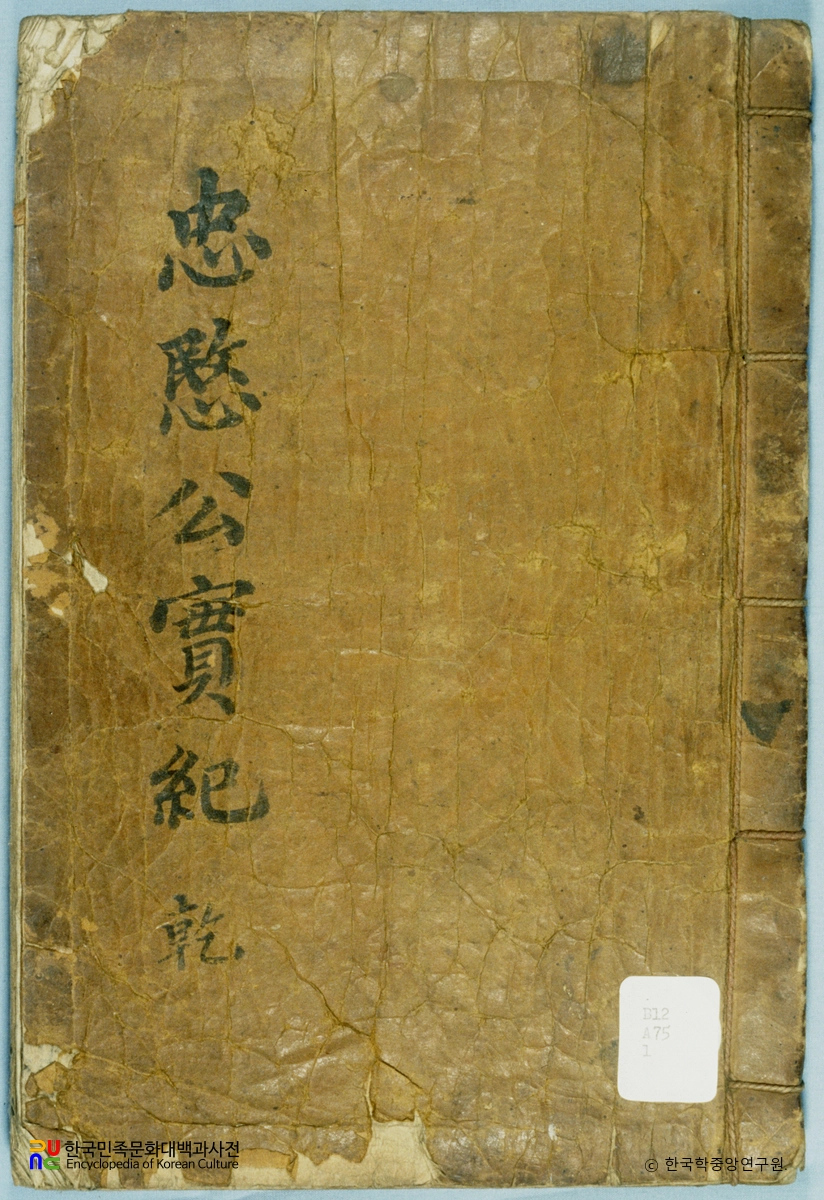 忠愍公實紀 乾
D12
A75
1
한국민족문화대백과사전
Encyclopedia of Korean Culture
© 한국학중앙연구원